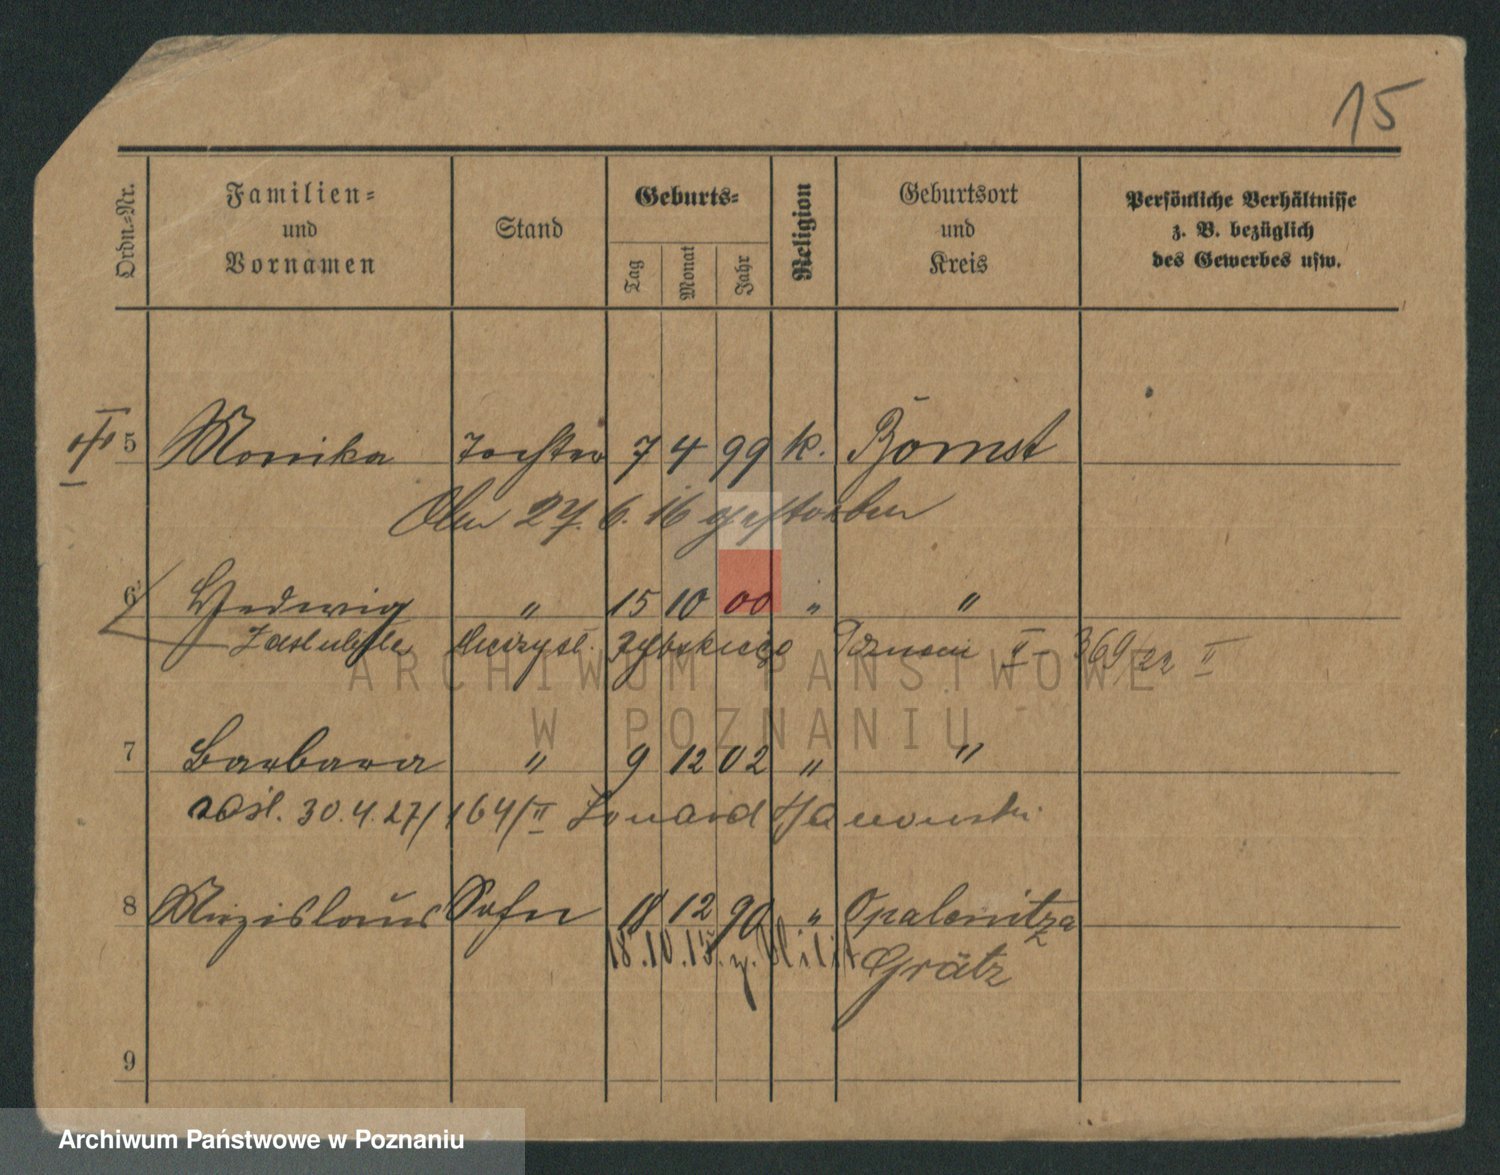 15
Ordn.=Nr.
Familien=
und
Vornamen
Stand
Geburts=
Tag
Monat
Jahr
Religion
Geburtsort
und
Kreis
Persönliche Verhältnisse
z. B. bezüglich
des Gewerbes usw.
5 Monika Tochter 7 4 99 k. Bomst
27. 6. 16 gestorben
6 Hedwig " 15 10 00 " "
Zaślubiła Zybskiego Poznań II - 369/22 II
ARCHIWUM PAŃSTWOWE
W POZNANIU
7 Barbara " 9 12 02 " "
zaśl. 30.4.27/164/II Janowski
8 Miezislaus Sohn 18 12 90 " Opalenitza
18.10.15. z. Milit Grätz
9
Archiwum Państwowe w Poznaniu